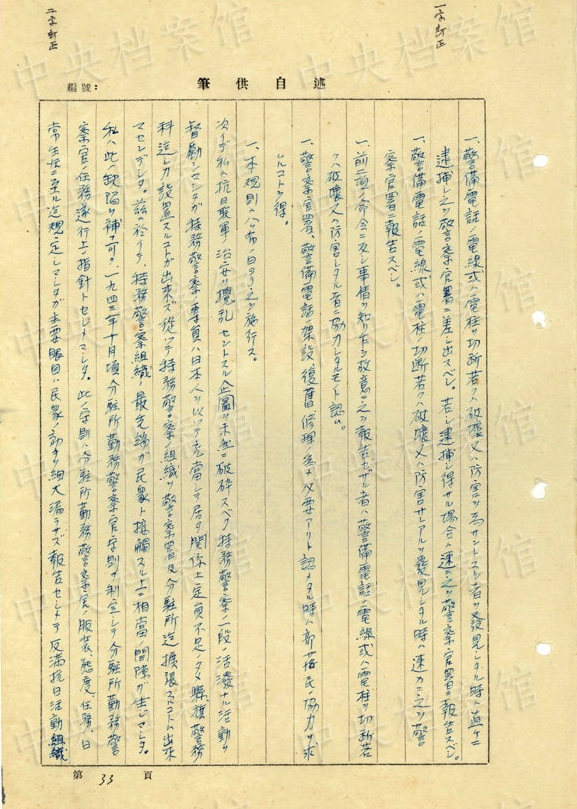 一字訂正
二字訂正
述自供筆
編號:
一、警備電話ノ電線或ハ電柱ヲ切断若クハ破壊又ハ防害ヲ為サントスル者ヲ発見シタル時ハ直チニ
逮捕シ之ヲ警察官署ニ差シ出スベシ。若シ逮捕シ得サル場合ハ速ニ之ヲ警察官署ニ報告スベシ。
一、警備電話ノ電線或ハ電柱ノ切断若クハ破壊又ハ防害サレアルヲ発見シタル時ハ速カニ之ヲ警
察官署ニ報告スベシ。
一、前二項ノ命令ニ反シ事情ヲ知リ乍ラ故意ニ之ヲ報告セザル者ハ警備電話ノ電線或ハ電柱ヲ切断若
クハ破壊又ハ防害シタル者ニ協力シタルモノト認ム。
一、警察官署、警備電話ノ架設復舊修理ノ為メ必要アリト認メタル時ハ部落住民ノ協力ヲ求
ムルコトヲ得。
一、本規則ハ公布ノ日ヨリ之ヲ施行ス。
次イデ私ハ抗日聯軍ノ治安ヲ攪乱セントスル企圖ヲ未然ニ破砕スベク特務警察ノ一段ノ活潑ナル活動ヲ
督勵シマシタガ特務警察ノ要員ハ日本人ヲ以ツテ充當シテ居タ関係上定員不足ノタメ縣旗警務
科迄シカ設置スルコトガ出来ズ従ツテ特務警察ノ組織ヲ警察署及分駐所迄擴張スルコトハ出来
マセンデシタ。茲ニ於イテ特務警察組織ノ最先端ガ民衆ト接觸スル上ニ相當ノ間隙ガ生ジマシタ。
私ハ此ノ缺陥ヲ補フ可ク一九四三年十月頃分駐所勤務警察官守則ヲ制定シテ分駐所勤務警
察官ノ任務遂行上ノ指針トセシメマシタ。此ノ守則ハ分駐所勤務警察官ノ服装、態度、任務、日
常生活ニ至ル迄規定シマシタガ主要眼目ハ民衆ノ動キヲ細大漏ラサズ報告セシメテ反満抗日活動組織
第 33 頁
中央档案馆